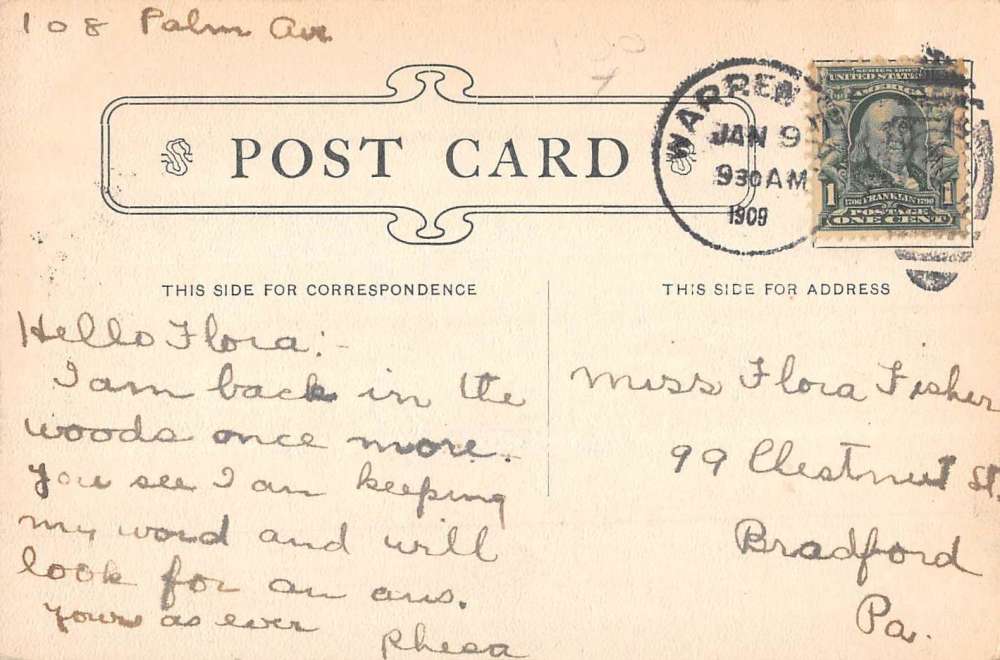 108 Palm Ave
POST CARD
WARREN
JAN 9
930AM
1909
SERIES 1902
UNITED STATES
AMERICA
1 1706 FRANKLIN 1790 1
POSTAGE
ONE CENT
THIS SIDE FOR CORRESPONDENCE
Hello Flora:-
I am back in the
woods once more.
You see I am keeping
my word and will
look for an ans.
Yours as ever
Rhea
THIS SIDE FOR ADDRESS
Miss Flora Fisher
99 Chestnut St.
Bradford
Pa.